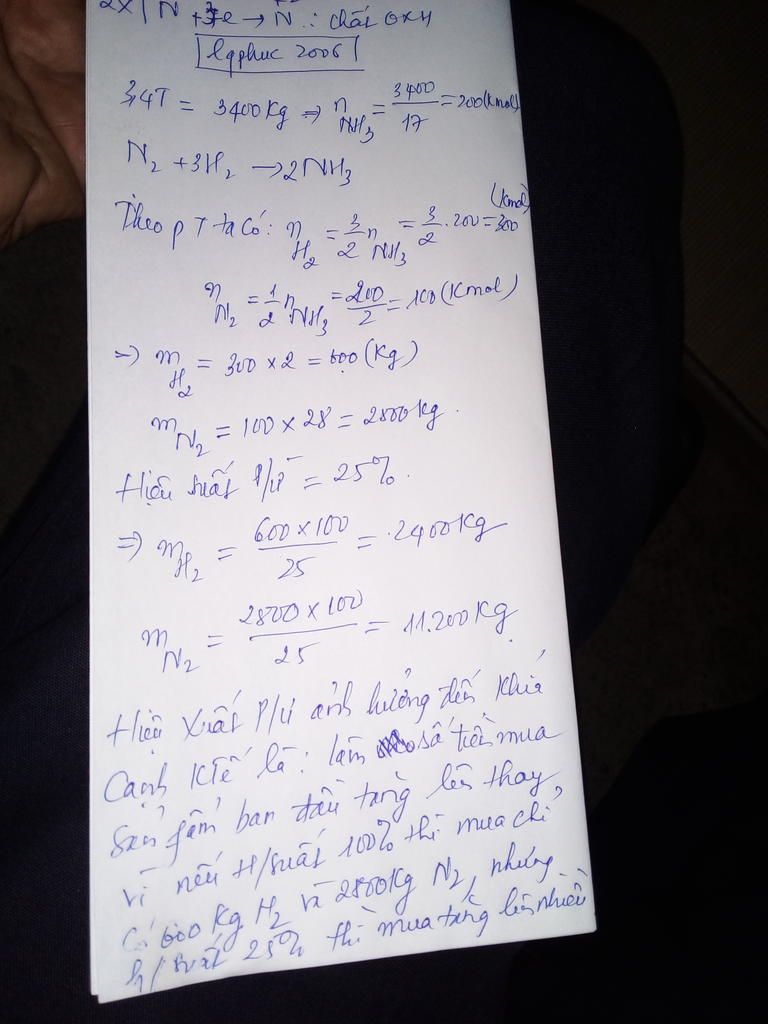 2x | N + 3e → N : chất OXH
lqphuc 2006
3,4T = 3400Kg ⇒ n NH3 = 3400/17 = 200(Kmol)
N2 + 3H2 → 2NH3
Theo pT ta có: n H2 = 3/2 n NH3 = 3/2 . 200 = 300 (Kmol)
n N2 = 1/2 n NH3 = 200/2 = 100(Kmol)
=> m H2 = 300 x 2 = 600(Kg)
m N2 = 100 x 28 = 2800kg.
Hiệu suất P/Ư = 25%.
=> m H2 = 600 x 100/25 = 2400Kg
m N2 = 2800 x 100/25 = 11.200Kg
Hiệu Xuất P/Ư ảnh hưởng đến Khía
Cạnh KTế là: làm số tiền mua
Sản fẩm ban đầu tăng lên thay
vì nếu H/suất 100% thì mua chỉ
có 600 Kg H2 và 2800Kg N2, nhưng
h/suất 25% thì mua tăng lên nhiều